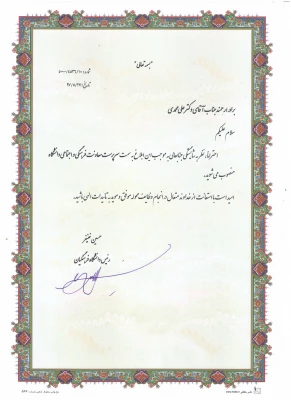 بسمه تعالی
برادر ارجمند جناب آقای دکتر علی محمدی
سلام علیکم
احتراماً، نظر به شایستگی جنابعالی به موجب این ابلاغ به سمت سرپرست معاونت فرهنگی و اجتماعی دانشگاه
منصوب می شوید.
امید است با استعانت از خداوند متعال در انجام وظایف محوله موفق و موید به تأییدات الهی باشید.
حسین خنیفر
رئیس دانشگاه فرهنگیان